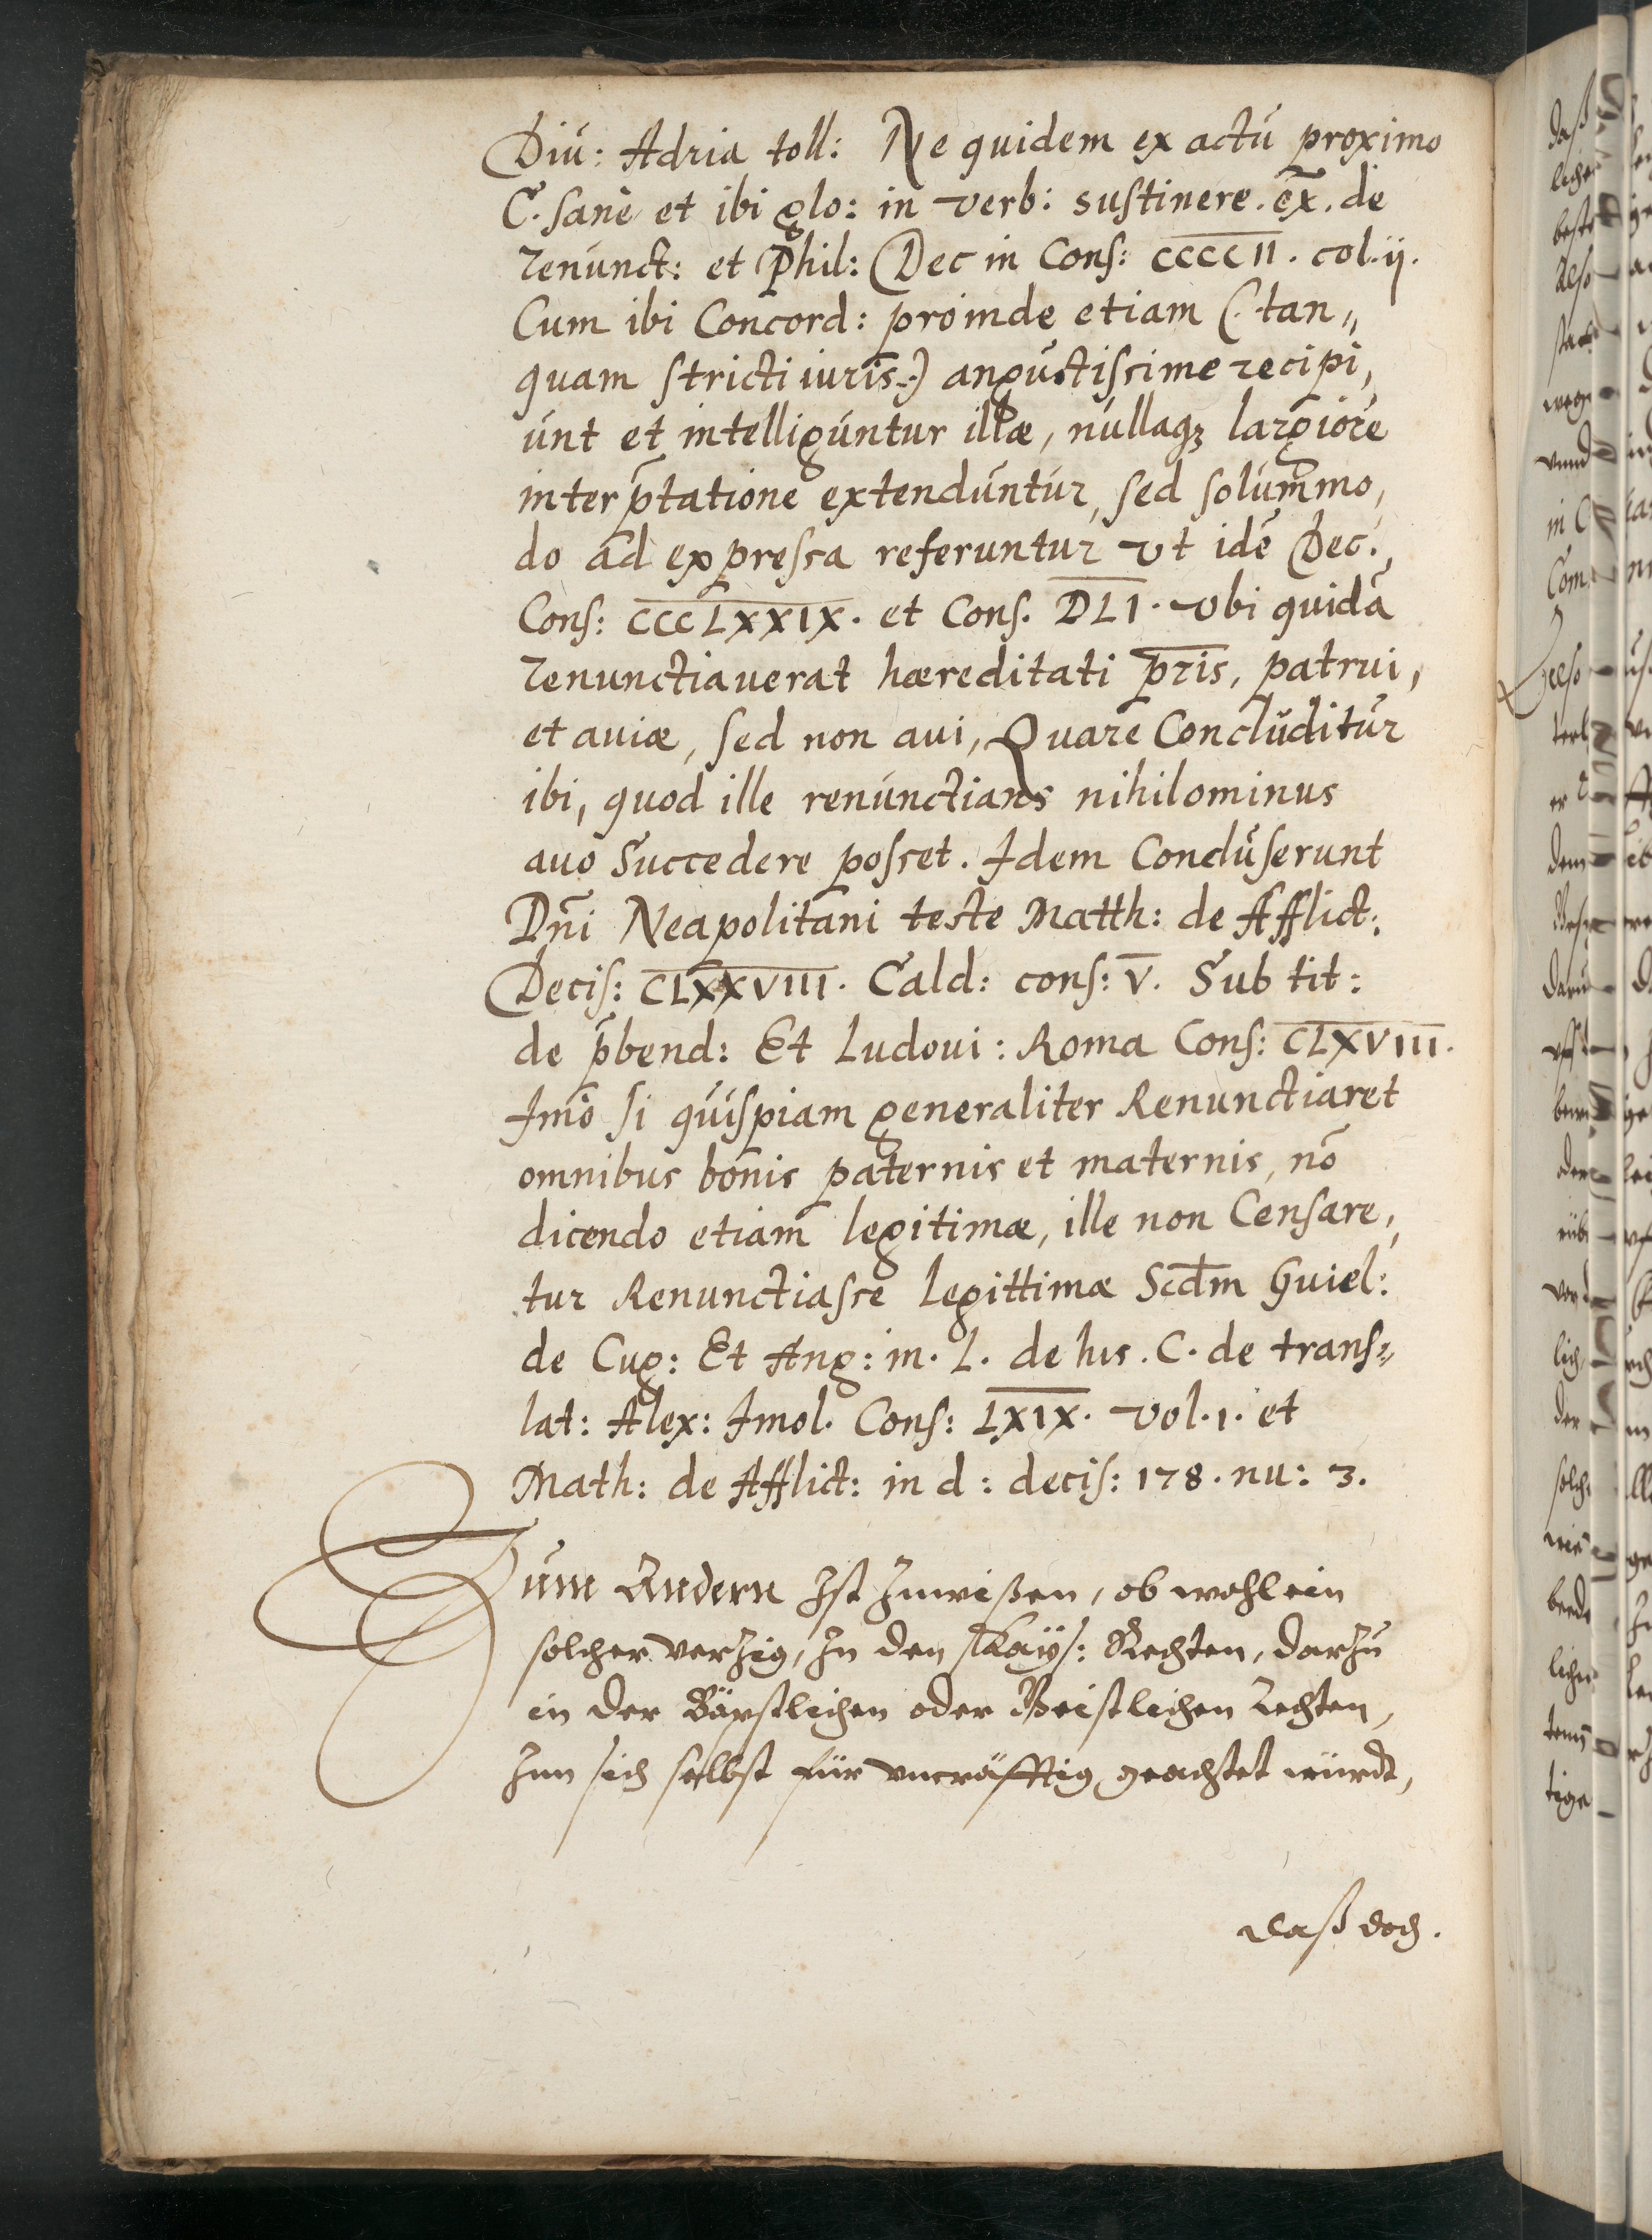 Diu: Adria toll: Ne quidem ex actu proximo
C. sane et ibi glo: in verb: sustinere. ex̄. de
renunct: et Phil: Dec in Cons: CCCCII. col. ij.
Cum ibi Concord: proinde etiam (. tan„
quam stricti iuris.) angustissime recipi,
unt et intelliguntur illæ, nullaqȝ largiore
interp̄tatione extenduntur, sed solum̄mo,
do ad expressa referuntur vt idē Dec.
Cons: CCCLXXIX. et Cons. DLI. vbi quidā
renunctiauerat hæreditati pr̄is, patrui,
et auiæ, sed non aui, Quare Concluditur
ibi, quod ille renunctians nihilominus
auo Succedere posset. Idem Concluserunt
Dn̄i Neapolitani teste Matth: de Afflict:
Decis: CLXXVIII. Cald: cons: V. Sub tit:
de p̄bend: Et Ludoui: Roma Cons: CLXVIII.
Imo si quispiam generaliter Renunctiaret
omnibus bonis paternis et maternis, nō
dicendo etiam legitimæ, ille non Censare,
tur Renunctiasse legittimæ Scd̄m Guiel:
de Cug: Et Ang: in. L. de his. C. de trans„
lat: Alex: Imol. Cons: LXIX. vol. 1. et
Math: de Afflict: in d: decis: 178. nu: 3.
Zum Andern Ist Zuwißen, ob wohl ein
solcher verzig, In den Kays: Rechten, darzu
in der Bäpstlichen oder Geistlichen Rechten,
Inn sich selbst für vncräfftig geachtet würdt,
daß doch.